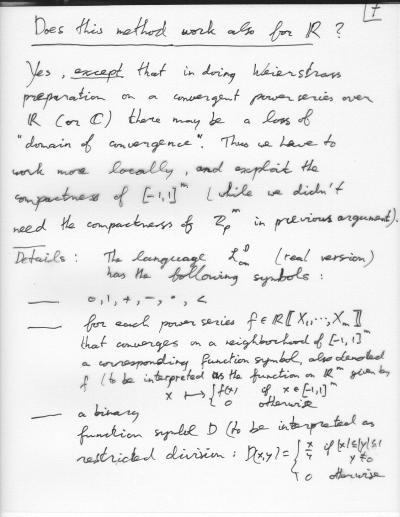 7
Does this method work also for ℝ ?
Yes, except that in doing Weierstrass
preparation on a convergent power series over
ℝ (or ℂ) there may be a loss of
"domain of convergence". Thus we have to
work more locally, and exploit the
compactness of [-1,1]^m (while we didn't
need the compactness of ℤ_p^m in previous argument).
Details : The language L_an^D (real version)
has the following symbols :
— 0, 1, +, −, ·, <
— for each power series f ∈ ℝ[[X_1, ⋯, X_m]]
that converges on a neighborhood of [-1,1]^m
a corresponding function symbol, also denoted
f (to be interpreted as the function on ℝ^m given by
x ↦ { f(x) if x ∈ [-1,1]^m
0 otherwise
— a binary
function symbol D (to be interpreted as
restricted division : D(x,y) = { x/y if |x| ≤ |y| ≤ 1
y ≠ 0
0 otherwise